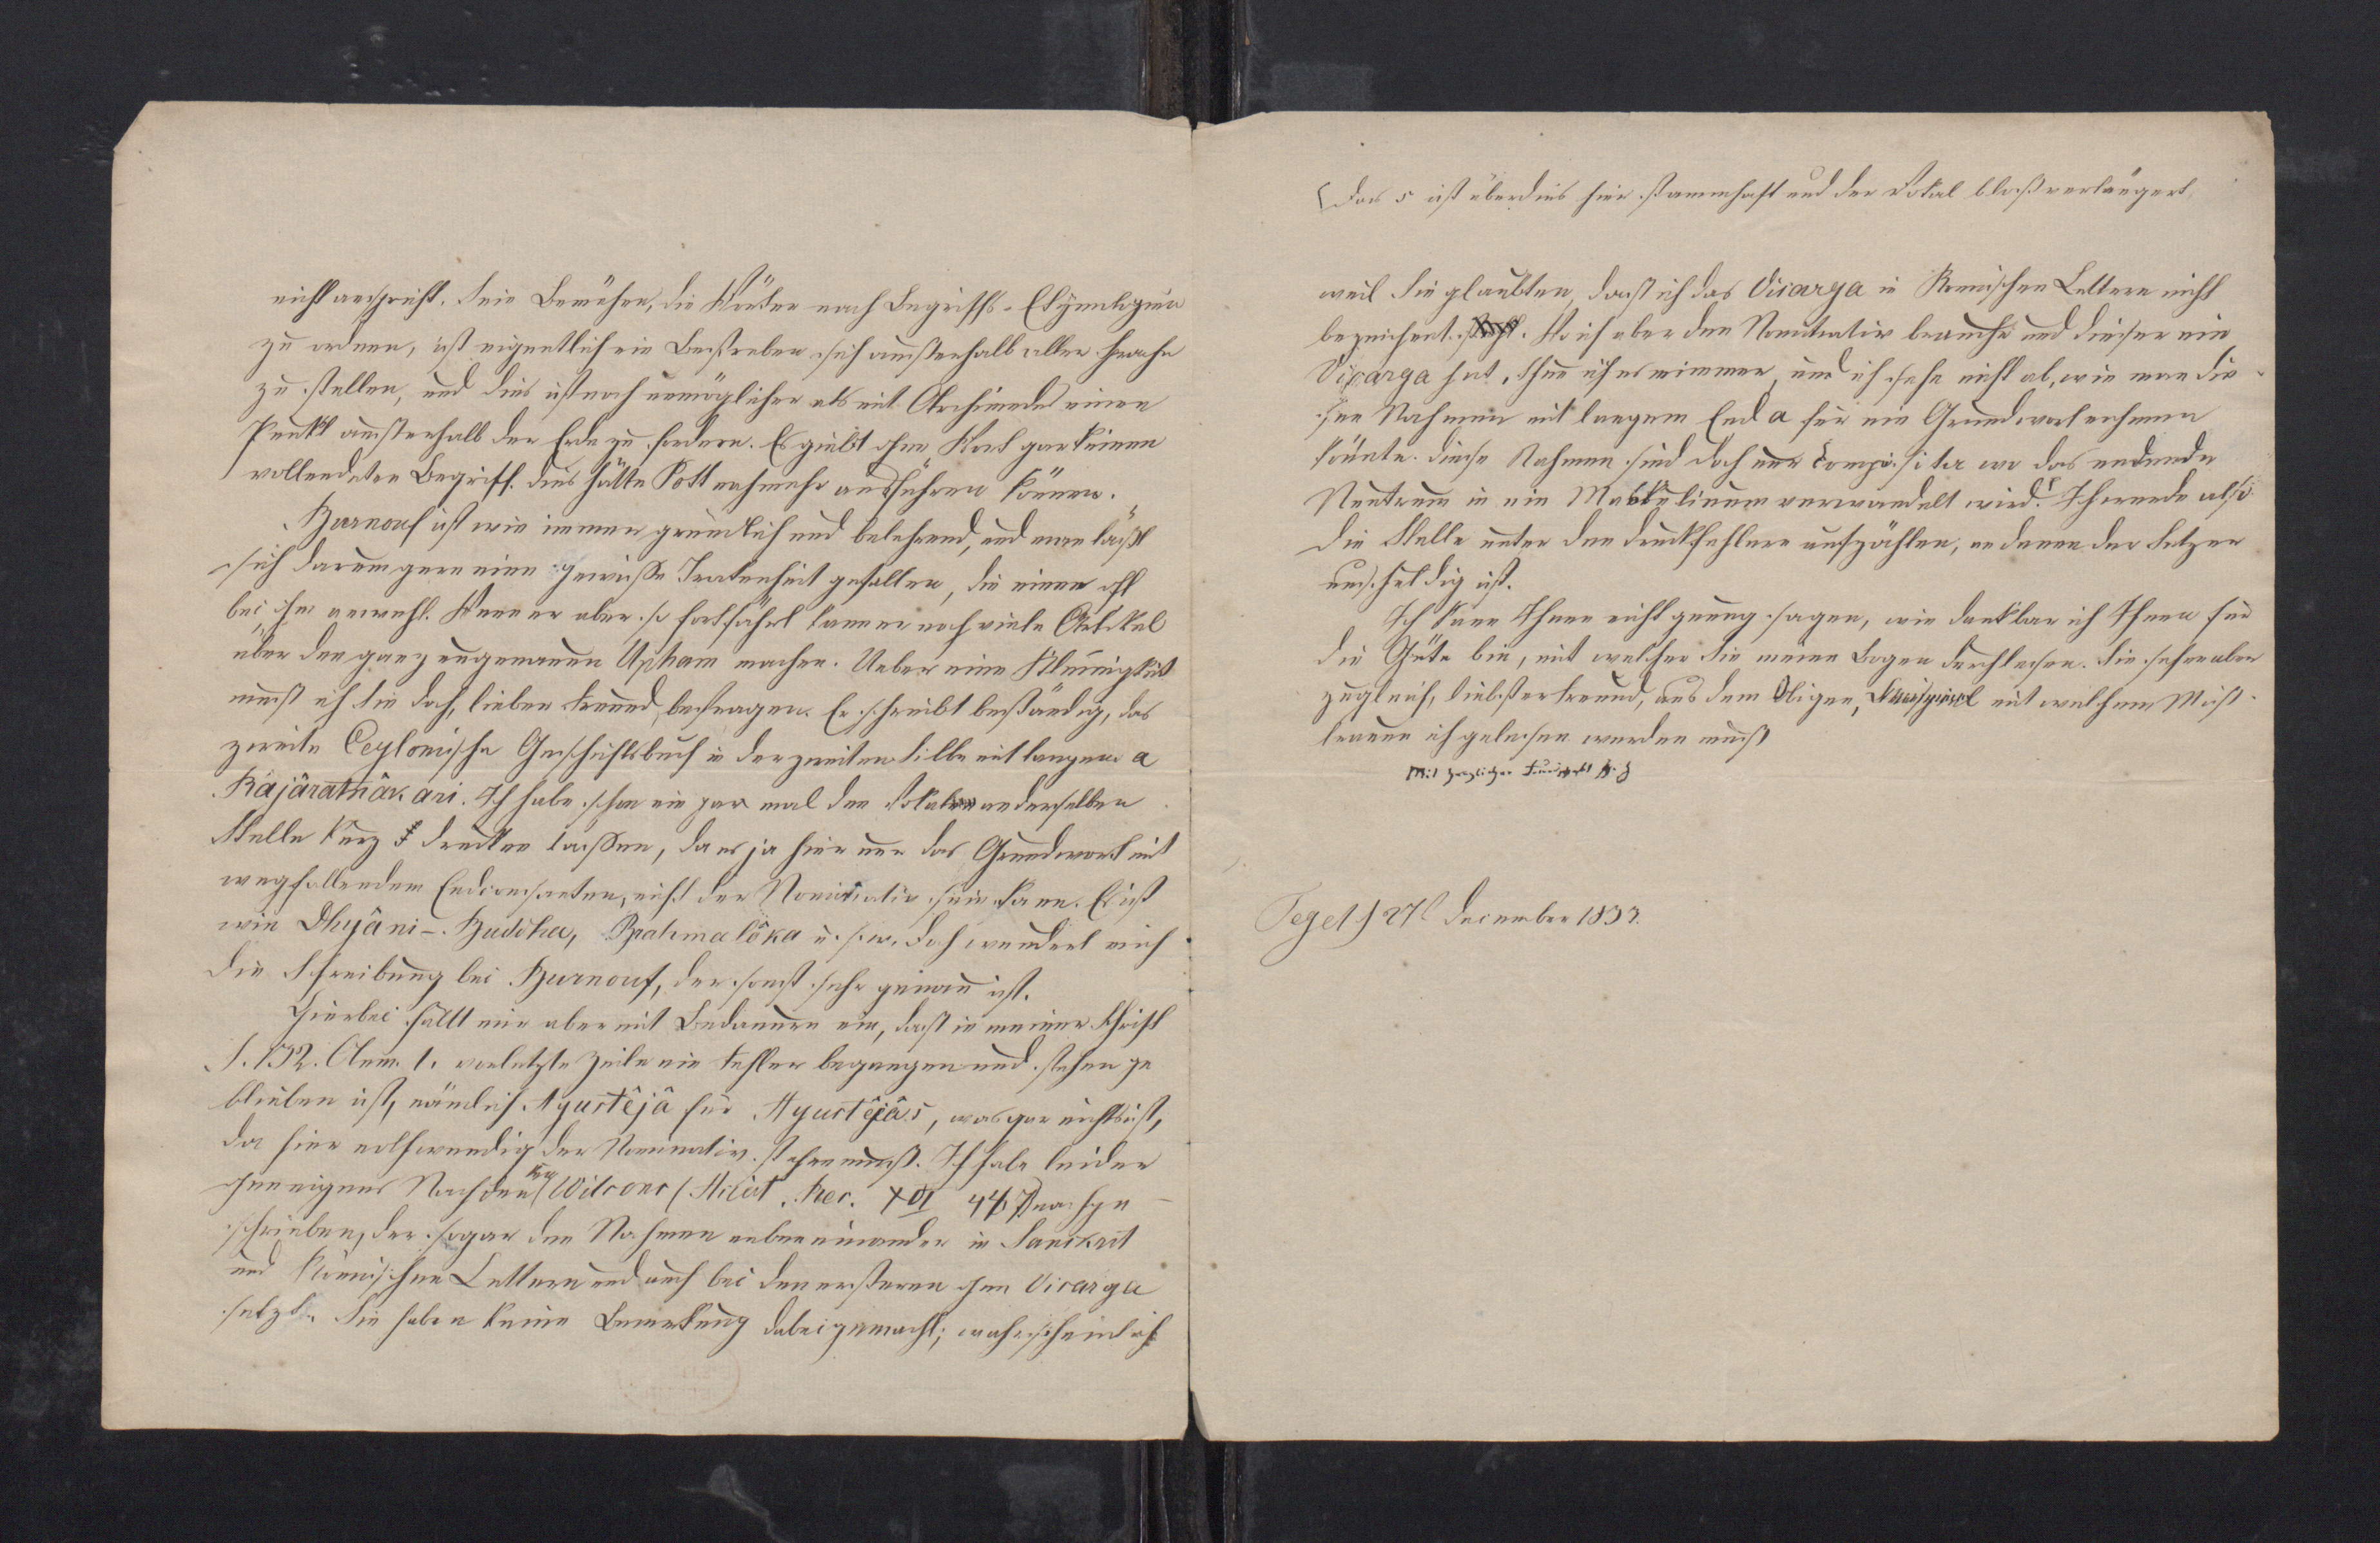 nicht anspricht. Sein Bemühen, die Wörter nach Begriffs-Etymologien
zu ordnen, ist eigentlich ein Bestreben sich ausserhalb aller Sprache
zu stellen, und dies ist noch unmöglicher als mit Archimedes einen
Punkt ausserhalb der Erde zu fordern. Es giebt ohne Wort gar keinen
vollendeten Begriff. Dies hätte Pott noch mehr ausführen können.
Burnouf ist wie immer gründlich und belehrend, und man läßt
sich darum gern eine gewisse Trokenheit gefallen, die einen oft
bei ihm anweht. Wenn er aber so fortfährt kann er noch viele Artikel
über den ganz ungenauen Upham machen. Ueber eine Kleinigkeit
muß ich Sie doch, lieber Freund, befragen. Er schreibt beständig, das
zweite Ceylonische Geschichtsbuch in der zweiten Silbe mit langem a
Râjâratnâkari. Ich habe schon ein paar mal den Vokal an derselben
Stelle kurz drucken lassen, da es ja hier nur das Grundwort mit
wegfallendem Endconsonanten, nicht der Nominativ sein kann. Es ist
wie Dhyâni-Buddha, Brahmalôka u. s. w. Doch wundert mich
die Schreibung bei Burnouf, der sonst sehr genau ist.
Hierbei fällt mir aber mit Bedauern ein, daß in meiner Schrift
S. 132. Anm. 1. vorletzte Zeile ein Fehler begangen und stehen ge
blieben ist, nämlich Ayustêjâ für Ayustêjâs, was gar nichts ist,
da hier nothwendig der Nominativ stehen muß. Ich habe leider
ohne eignes Nachdenken Wilsons (Asiat. Res. XVI 447) nachge
schrieben, der sogar den Nahmen neben einander in Sanskrit
und Römischen Lettern und auch bei den ersteren ohne Visarga
setzt. Sie haben keine Bemerkung dabei gemacht; wahrscheinlich
(Das s ist überdies hier stammhaft und der Vokal bloß verlängert,
weil Sie glaubten, daß ich das Visarga in Römischen Lettern nicht
bezeichnet. Wo ich aber den Nominativ brauche und dieser ein
Visarga hat, thue ich es immer, und ich sehe nicht ab, wie man die
sen Nahmen mit langem End a für ein Grundwort nehmen
könnte. Diese Nahmen sind doch nur Composita wo das endende
Neutrum in ein Maskulinum verwandelt wird. Ich werde also
die Stelle unter den Drukfehlern aufzählen, an denen der Setzer
unschuldig ist.
Ich kann Ihnen nicht genug sagen, wie dankbar ich Ihnen für
die Güte bin, mit welcher Sie meine Bogen durchlesen. Sie sehen aber
zugleich, liebster Freund, aus dem Obigen, Beispiel mit welchem Miß
trauen ich gelesen werden muß
Mit herzlicher Freundschaft
Tegel, 27 December 1833.